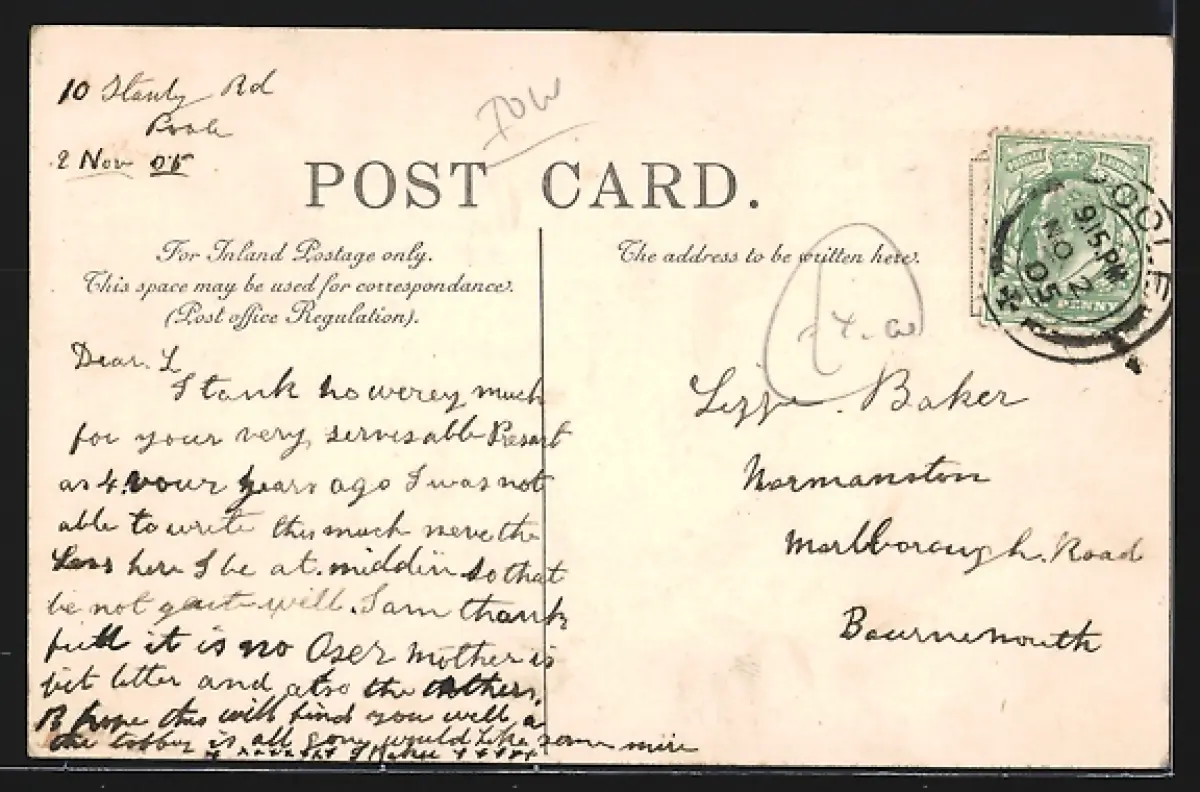 10 Stanly Rd
Poole
2 Nov 05
POST CARD.
For Inland Postage only.
This space may be used for correspondance.
(Post office Regulation).
The address to be written here.
POOLE
915PM
NO 2
05
Dear. L
I tank you werey much
for your very servisable Presant
as 4 your years ago I was not
able to write this much neverthe
Less here I be at middlin so that
be not quite well. I am thank
full it is no Oser Mother is
bit better and also the others.
hope this will find you well,
the tobboy is all gone would like some mire
Baker
Lizzie Baker
Normanston
Marlborough. Road
Bournemouth